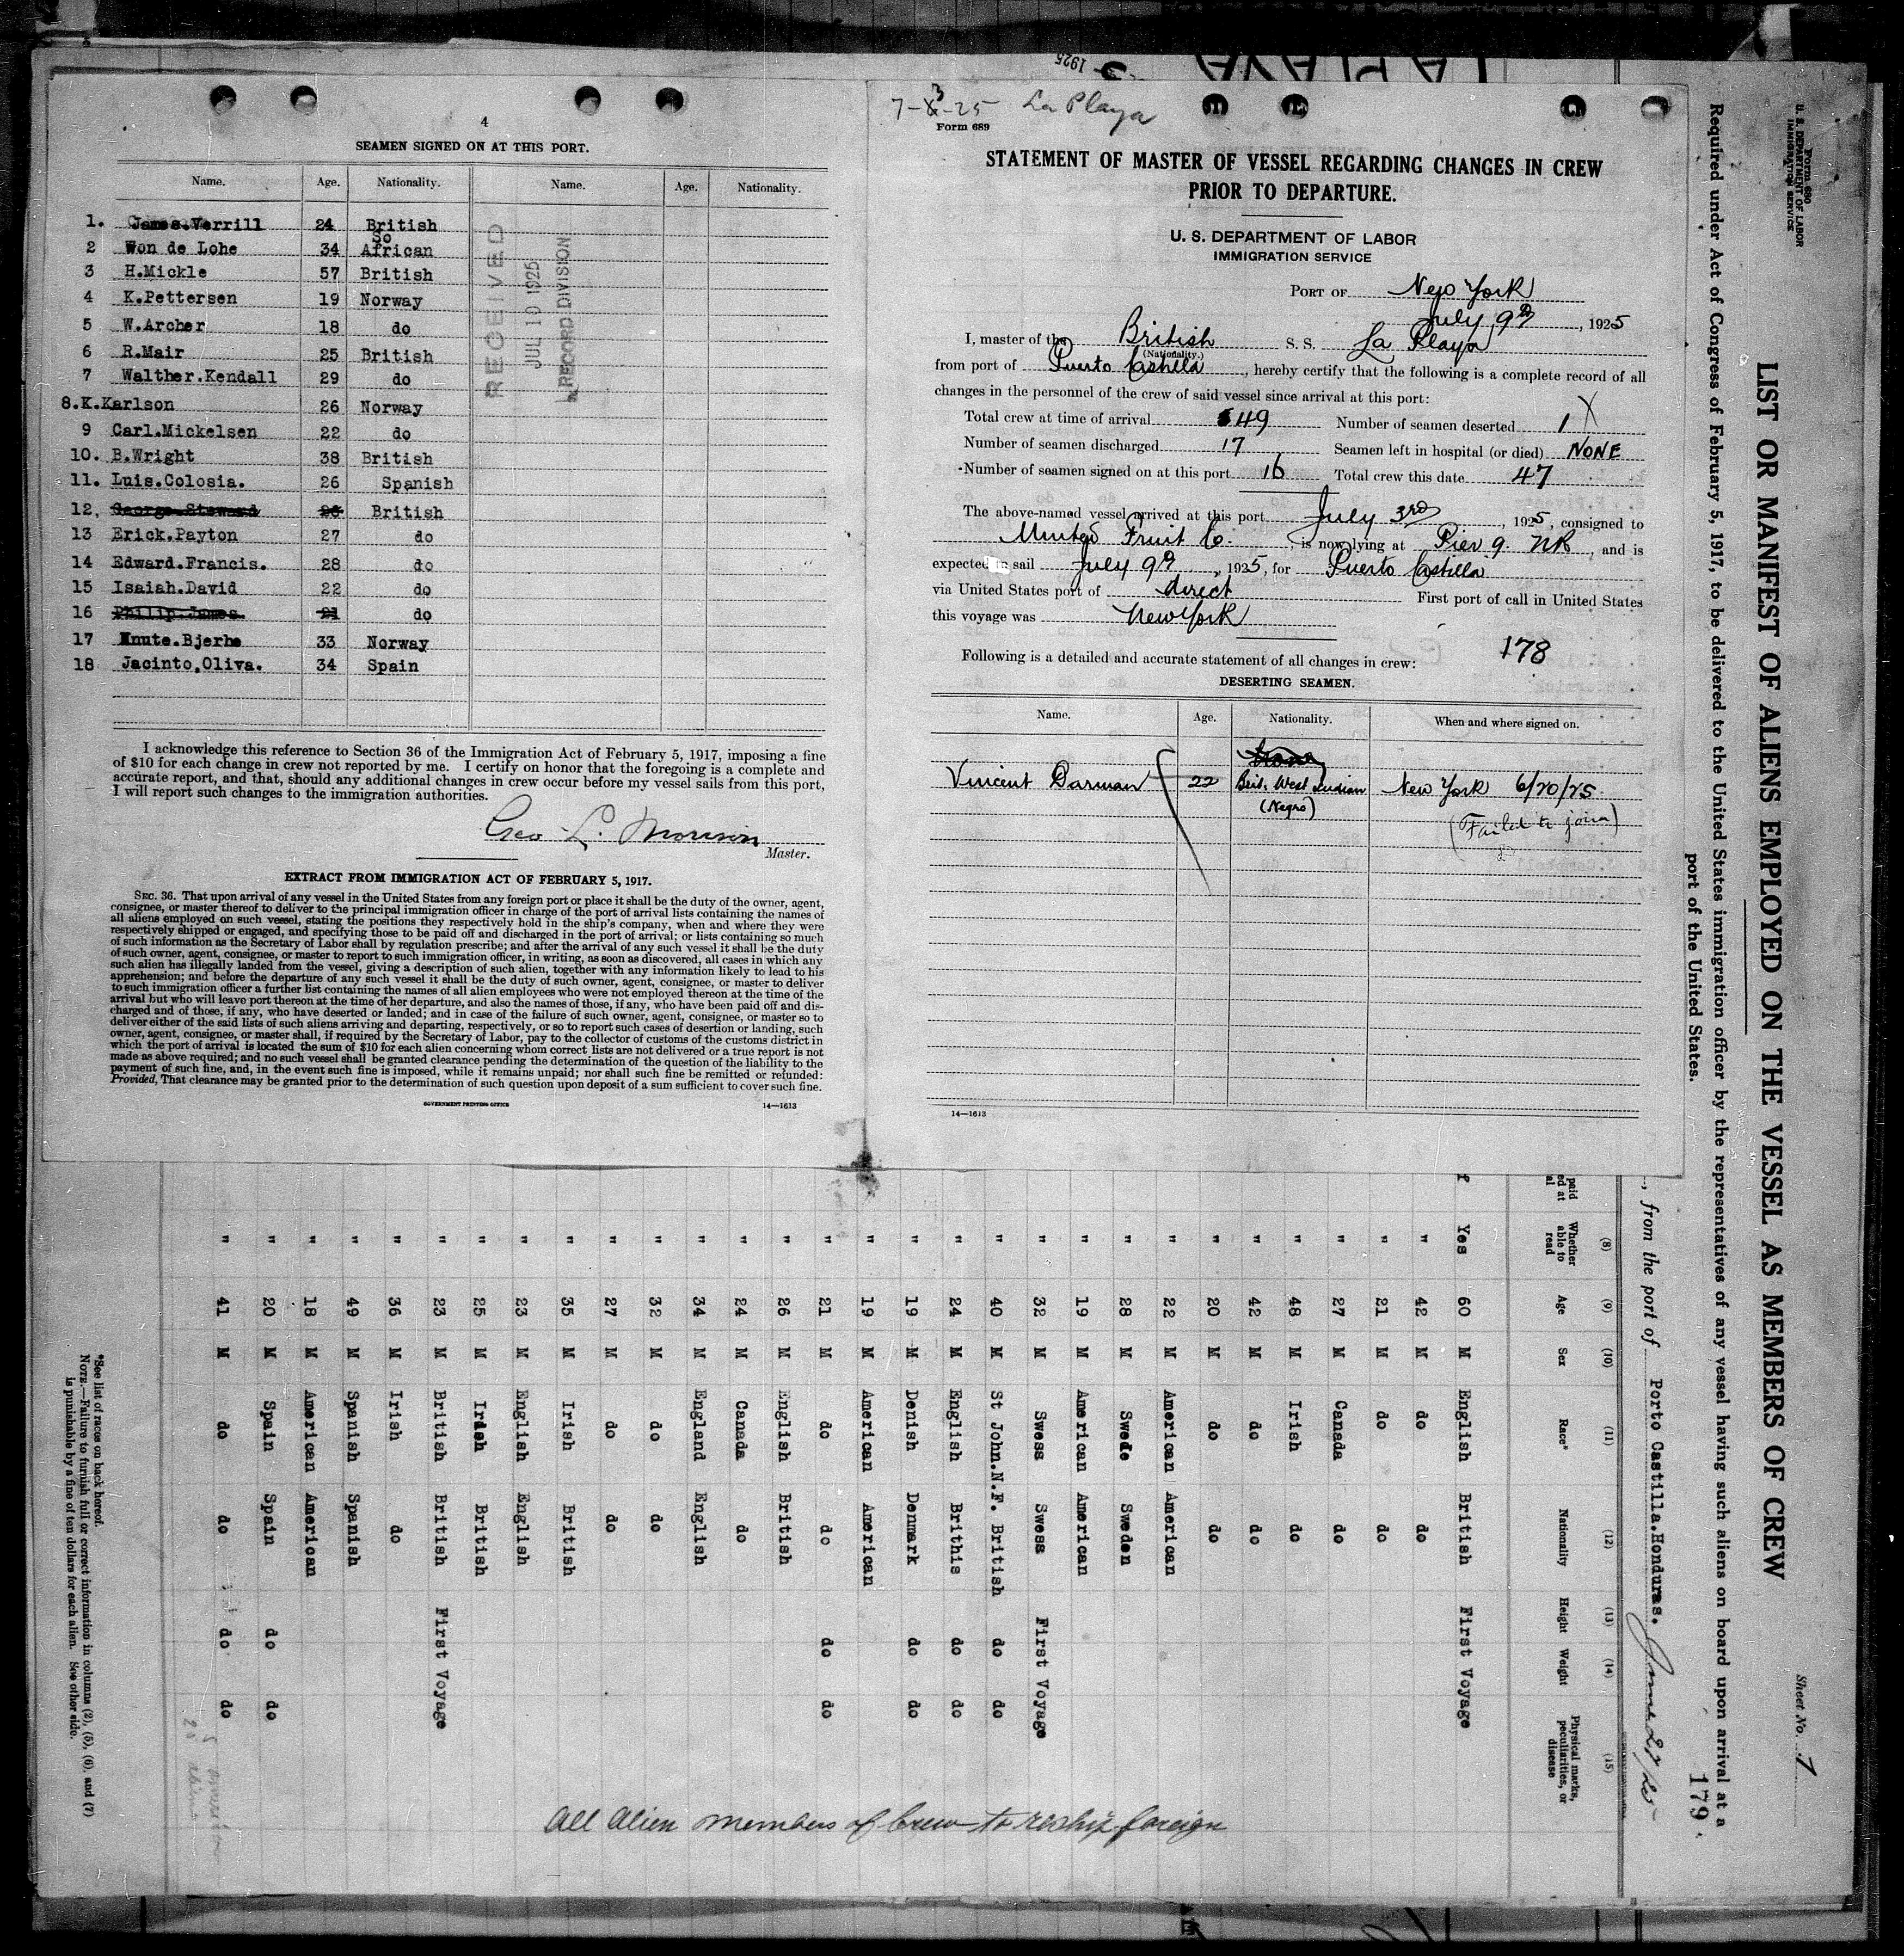 LA PLAYA
1925
4
SEAMEN SIGNED ON AT THIS PORT.
Name. Age. Nationality. Name. Age. Nationality.
1. James.Verrill 24 British
2 Won de Lohe 34 So African
3 H.Mickle 57 British
4 K.Pettersen 19 Norway
5 W.Archer 18 do
6 R.Mair 25 British
7 Walther.Kendall 29 do
8.K.Karlson 26 Norway
9 Carl.Mickelsen 22 do
10. B.Wright 38 British
11. Luis.Colosia. 26 Spanish
12, George.Steward 26 British
13 Erick.Payton 27 do
14 Edward.Francis. 28 do
15 Isaiah.David 22 do
16 Philip.James. 21 do
17 Knute.Bjerhe 33 Norway
18 Jacinto.Oliva. 34 Spain
RECEIVED
JUL 10 1925
RECORD DIVISION
I acknowledge this reference to Section 36 of the Immigration Act of February 5, 1917, imposing a fine
of $10 for each change in crew not reported by me. I certify on honor that the foregoing is a complete and
accurate report, and that, should any additional changes in crew occur before my vessel sails from this port,
I will report such changes to the immigration authorities.
Geo L. Morrison
Master.
EXTRACT FROM IMMIGRATION ACT OF FEBRUARY 5, 1917.
SEC. 36. That upon arrival of any vessel in the United States from any foreign port or place it shall be the duty of the owner, agent,
consignee, or master thereof to deliver to the principal immigration officer in charge of the port of arrival lists containing the names of
all aliens employed on such vessel, stating the positions they respectively hold in the ship's company, when and where they were
respectively shipped or engaged, and specifying those to be paid off and discharged in the port of arrival; or lists containing so much
of such information as the Secretary of Labor shall by regulation prescribe; and after the arrival of any such vessel it shall be the duty
of such owner, agent, consignee, or master to report to such immigration officer, in writing, as soon as discovered, all cases in which any
such alien has illegally landed from the vessel, giving a description of such alien, together with any information likely to lead to his
apprehension; and before the departure of any such vessel it shall be the duty of such owner, agent, consignee, or master to deliver
to such immigration officer a further list containing the names of all alien employees who were not employed thereon at the time of the
arrival but who will leave port thereon at the time of her departure, and also the names of those, if any, who have been paid off and dis-
charged and of those, if any, who have deserted or landed; and in case of the failure of such owner, agent, consignee, or master so to
deliver either of the said lists of such aliens arriving and departing, respectively, or so to report such cases of desertion or landing, such
owner, agent, consignee, or master shall, if required by the Secretary of Labor, pay to the collector of customs of the customs district in
which the port of arrival is located the sum of $10 for each alien concerning whom correct lists are not delivered or a true report is not
made as above required; and no such vessel shall be granted clearance pending the determination of the question of the liability to the
payment of such fine, and, in the event such fine is imposed, while it remains unpaid; nor shall such fine be remitted or refunded:
Provided, That clearance may be granted prior to the determination of such question upon deposit of a sum sufficient to cover such fine.
GOVERNMENT PRINTING OFFICE 14—1613
7-3-25 La Playa
Form 689
STATEMENT OF MASTER OF VESSEL REGARDING CHANGES IN CREW
PRIOR TO DEPARTURE.
U. S. DEPARTMENT OF LABOR
IMMIGRATION SERVICE
PORT OF New York
July 9th, 1925
I, master of the British S. S. La Playa
(Nationality.)
from port of Puerto Castilla, hereby certify that the following is a complete record of all
changes in the personnel of the crew of said vessel since arrival at this port:
Total crew at time of arrival 49 Number of seamen deserted 1 X
Number of seamen discharged 17 Seamen left in hospital (or died) NONE
Number of seamen signed on at this port 16 Total crew this date 47
The above-named vessel arrived at this port July 3rd, 1925, consigned to
United Fruit Co., is now lying at Pier 9. NR, and is
expected to sail July 9th, 1925, for Puerto Castilla
via United States port of direct First port of call in United States
this voyage was New York
178
Following is a detailed and accurate statement of all changes in crew:
DESERTING SEAMEN.
Name. Age. Nationality. When and where signed on.
Vincent Darman 22 Brit. West Indian New York 6/20/25
(Negro)
(Failed to join)
14—1613
Form 680
U. S. DEPARTMENT OF LABOR
IMMIGRATION SERVICE
Sheet No. 7
LIST OR MANIFEST OF ALIENS EMPLOYED ON THE VESSEL AS MEMBERS OF CREW
Required under Act of Congress of February 5, 1917, to be delivered to the United States immigration officer by the representatives of any vessel having such aliens on board upon arrival at a
port of the United States.
179
, from the port of Porto Castilla.Honduras. June 27/25
(8) (9) (10) (11) (12) (13) (14) (15)
Whether able to read Age Sex Race* Nationality Height Weight Physical marks, peculiarities, or disease
Yes 60 M English British First Voyage
" 42 M do do
" 21 M do do
" 27 M Canada do
" 48 M Irish do
" 42 M do do
" 20 M do do
" 22 M American American
" 28 M Swede Sweden
" 19 M American American
" 32 M Swess Swess First Voyage
" 40 M St John.N.F. British do do
" 24 M English Brithis do do
" 19 M Denish Denmark do do
" 19 M American American
" 21 M do do do do
" 26 M English British
" 24 M Canada do
" 34 M England English
" 32 M do do
" 27 M do do
" 35 M Irish British
" 23 M English English
" 25 M Irish British
" 23 M British British First Voyage
" 36 M Irish do
" 49 M Spanish Spanish
" 18 M American American
" 20 M Spain Spain do do
" 41 M do do do do
All Alien members of Crew to reship foreign
*See list of races on back hereof.
NOTE.—Failure to furnish full or correct information in columns (2), (5), (6), and (7)
is punishable by a fine of ten dollars for each alien. See other side.